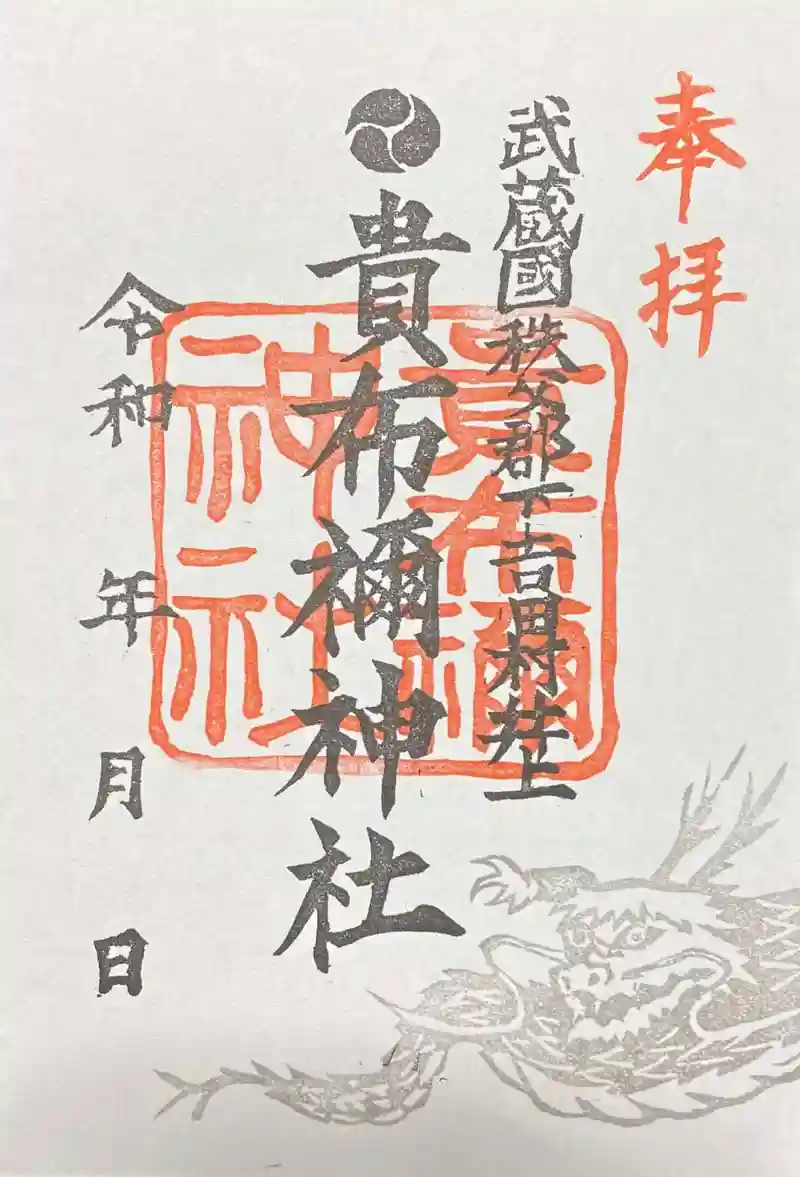 奉拝
武蔵國秩父郡下吉田村井上
貴布禰神社
貴布禰
神社
令和 年 月 日